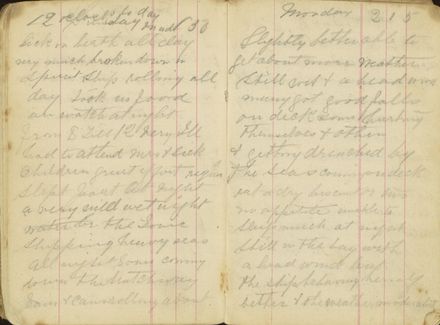 12 o'clock to day
Sick in birth all day
very much broken down in
Spirit Ship rolling all
day Took no food
on watch at night
from 8 Till 12 Very Ill
had to attend Mrs & Sick
Children great effort
Slept Most All Night
a very wild wet night
water in the
Shipping heavy seas
All night Some coming
down the Hatchway
Cans & Cans rolling about
Monday 2 1 5
Slightly better able to
get about more Weather
Still wet & a head wind
many got good falls
on deck Some hurting
themselves & others
getting drenched by
the Seas coming on deck
eat a dry biscuit or two
no appetite unable to
Sleep much at night
Still in the bay with
a head wind but
the ship behaving
better & the weather